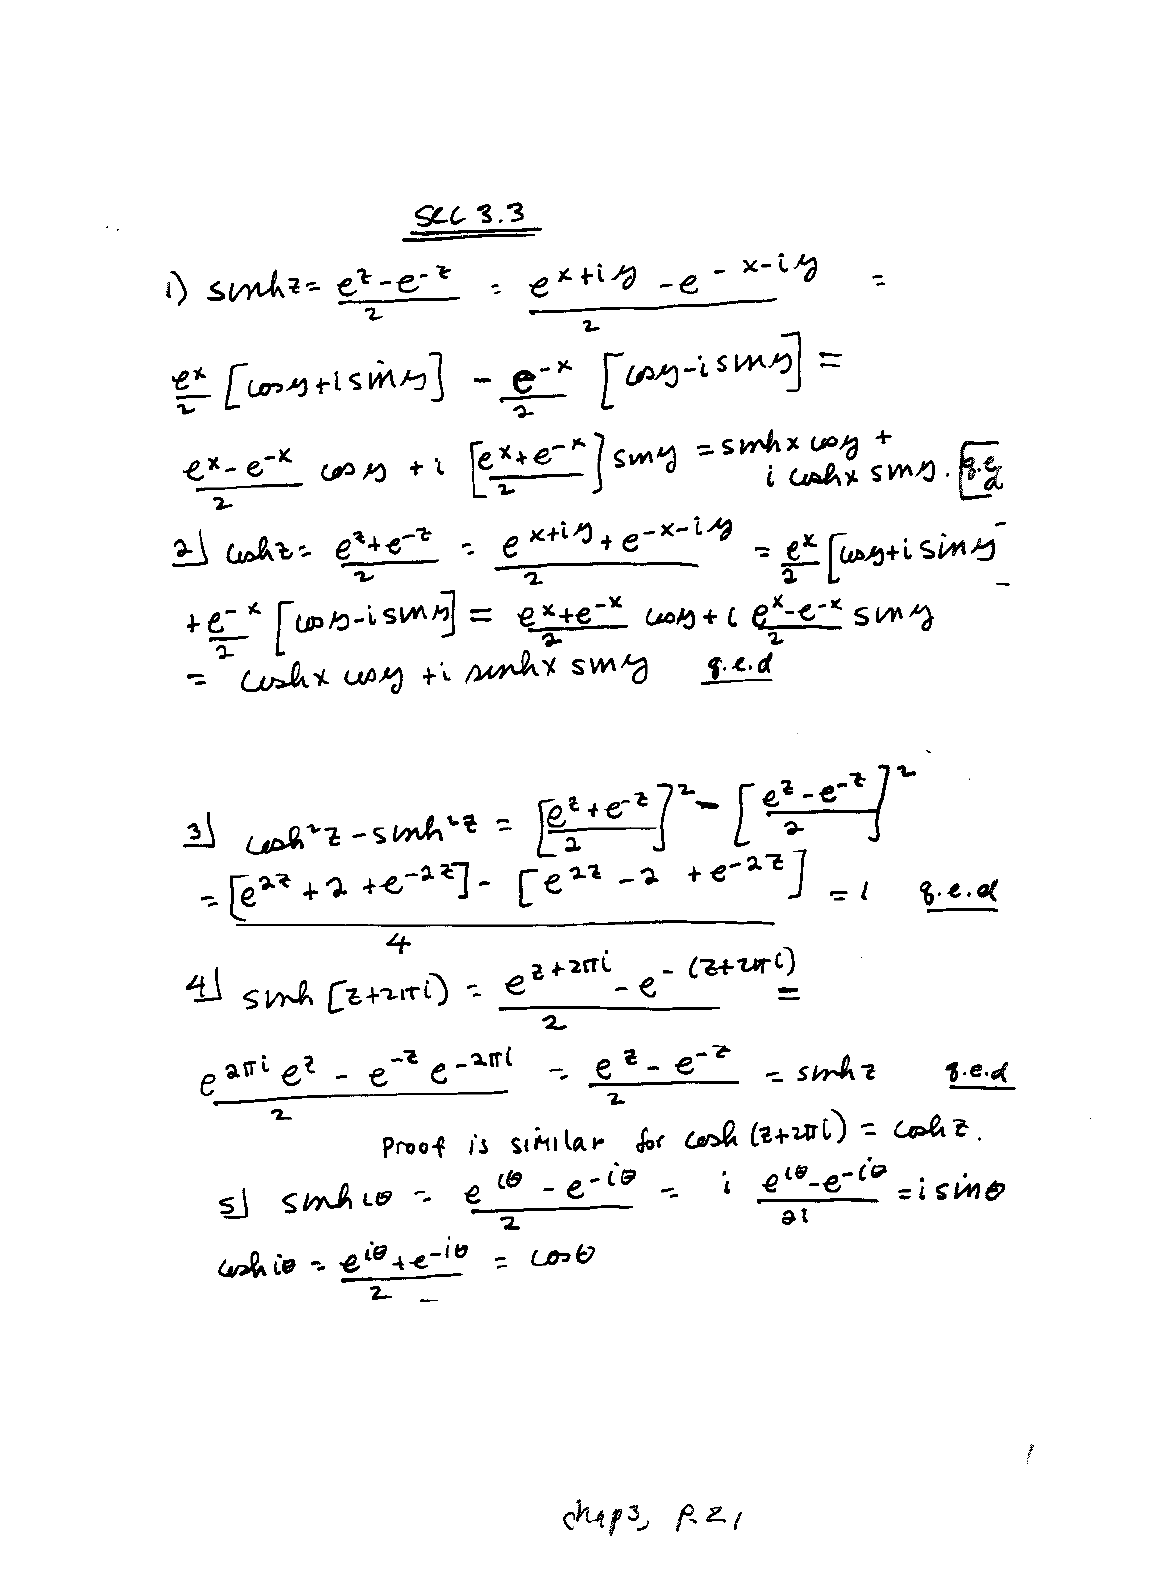 Sec 3.3
1) sinh z = (e^z - e^-z)/2 = (e^x+iy - e^-x-iy)/2 =
e^x/2 [cos y + i sin y] - e^-x/2 [cos y - i sin y] =
(e^x - e^-x)/2 cos y + i [(e^x + e^-x)/2] sin y = sinh x cos y +
i cosh x sin y. q.e.d
2) cosh z = (e^z + e^-z)/2 = (e^x+iy + e^-x-iy)/2 = e^x/2 [cos y + i sin y]
+ e^-x/2 [cos y - i sin y] = (e^x + e^-x)/2 cos y + i (e^x - e^-x)/2 sin y
= cosh x cos y + i sinh x sin y q.e.d
3) cosh²z - sinh²z = [(e^z + e^-z)/2]² - [(e^z - e^-z)/2]²
= ([e^2z + 2 + e^-2z] - [e^2z - 2 + e^-2z])/4 = 1 q.e.d
4) sinh [z+2πi) = (e^z+2πi - e^-(z+2πi))/2 =
(e^2πi e^z - e^-z e^-2πi)/2 = (e^z - e^-z)/2 = sinh z q.e.d
Proof is similar for cosh (z+2πi) = cosh z.
5) sinh iθ = (e^iθ - e^-iθ)/2 = i (e^iθ - e^-iθ)/2i = i sin θ
cosh iθ = (e^iθ + e^-iθ)/2 = cos θ
chap3, p. 21